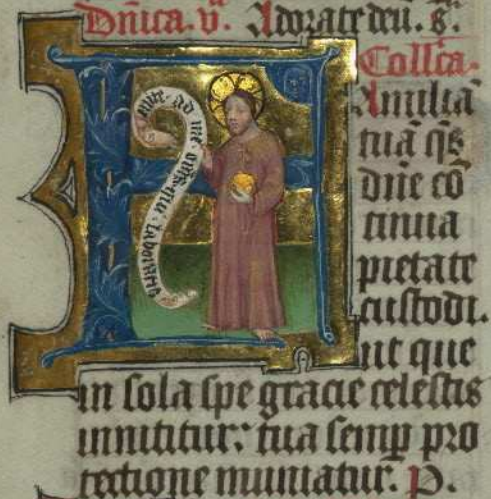 Dñica. v. Adorate deū. s.
Collca.
Amiliā
tuā q̄s
dñe cō
tinua
pietate
custodi.
ut que
in sola spe gracie celestis
innititur: tua semp̄ pro
tectione muniatur. P.
venite · ad me · om̄s · qui · laboratis